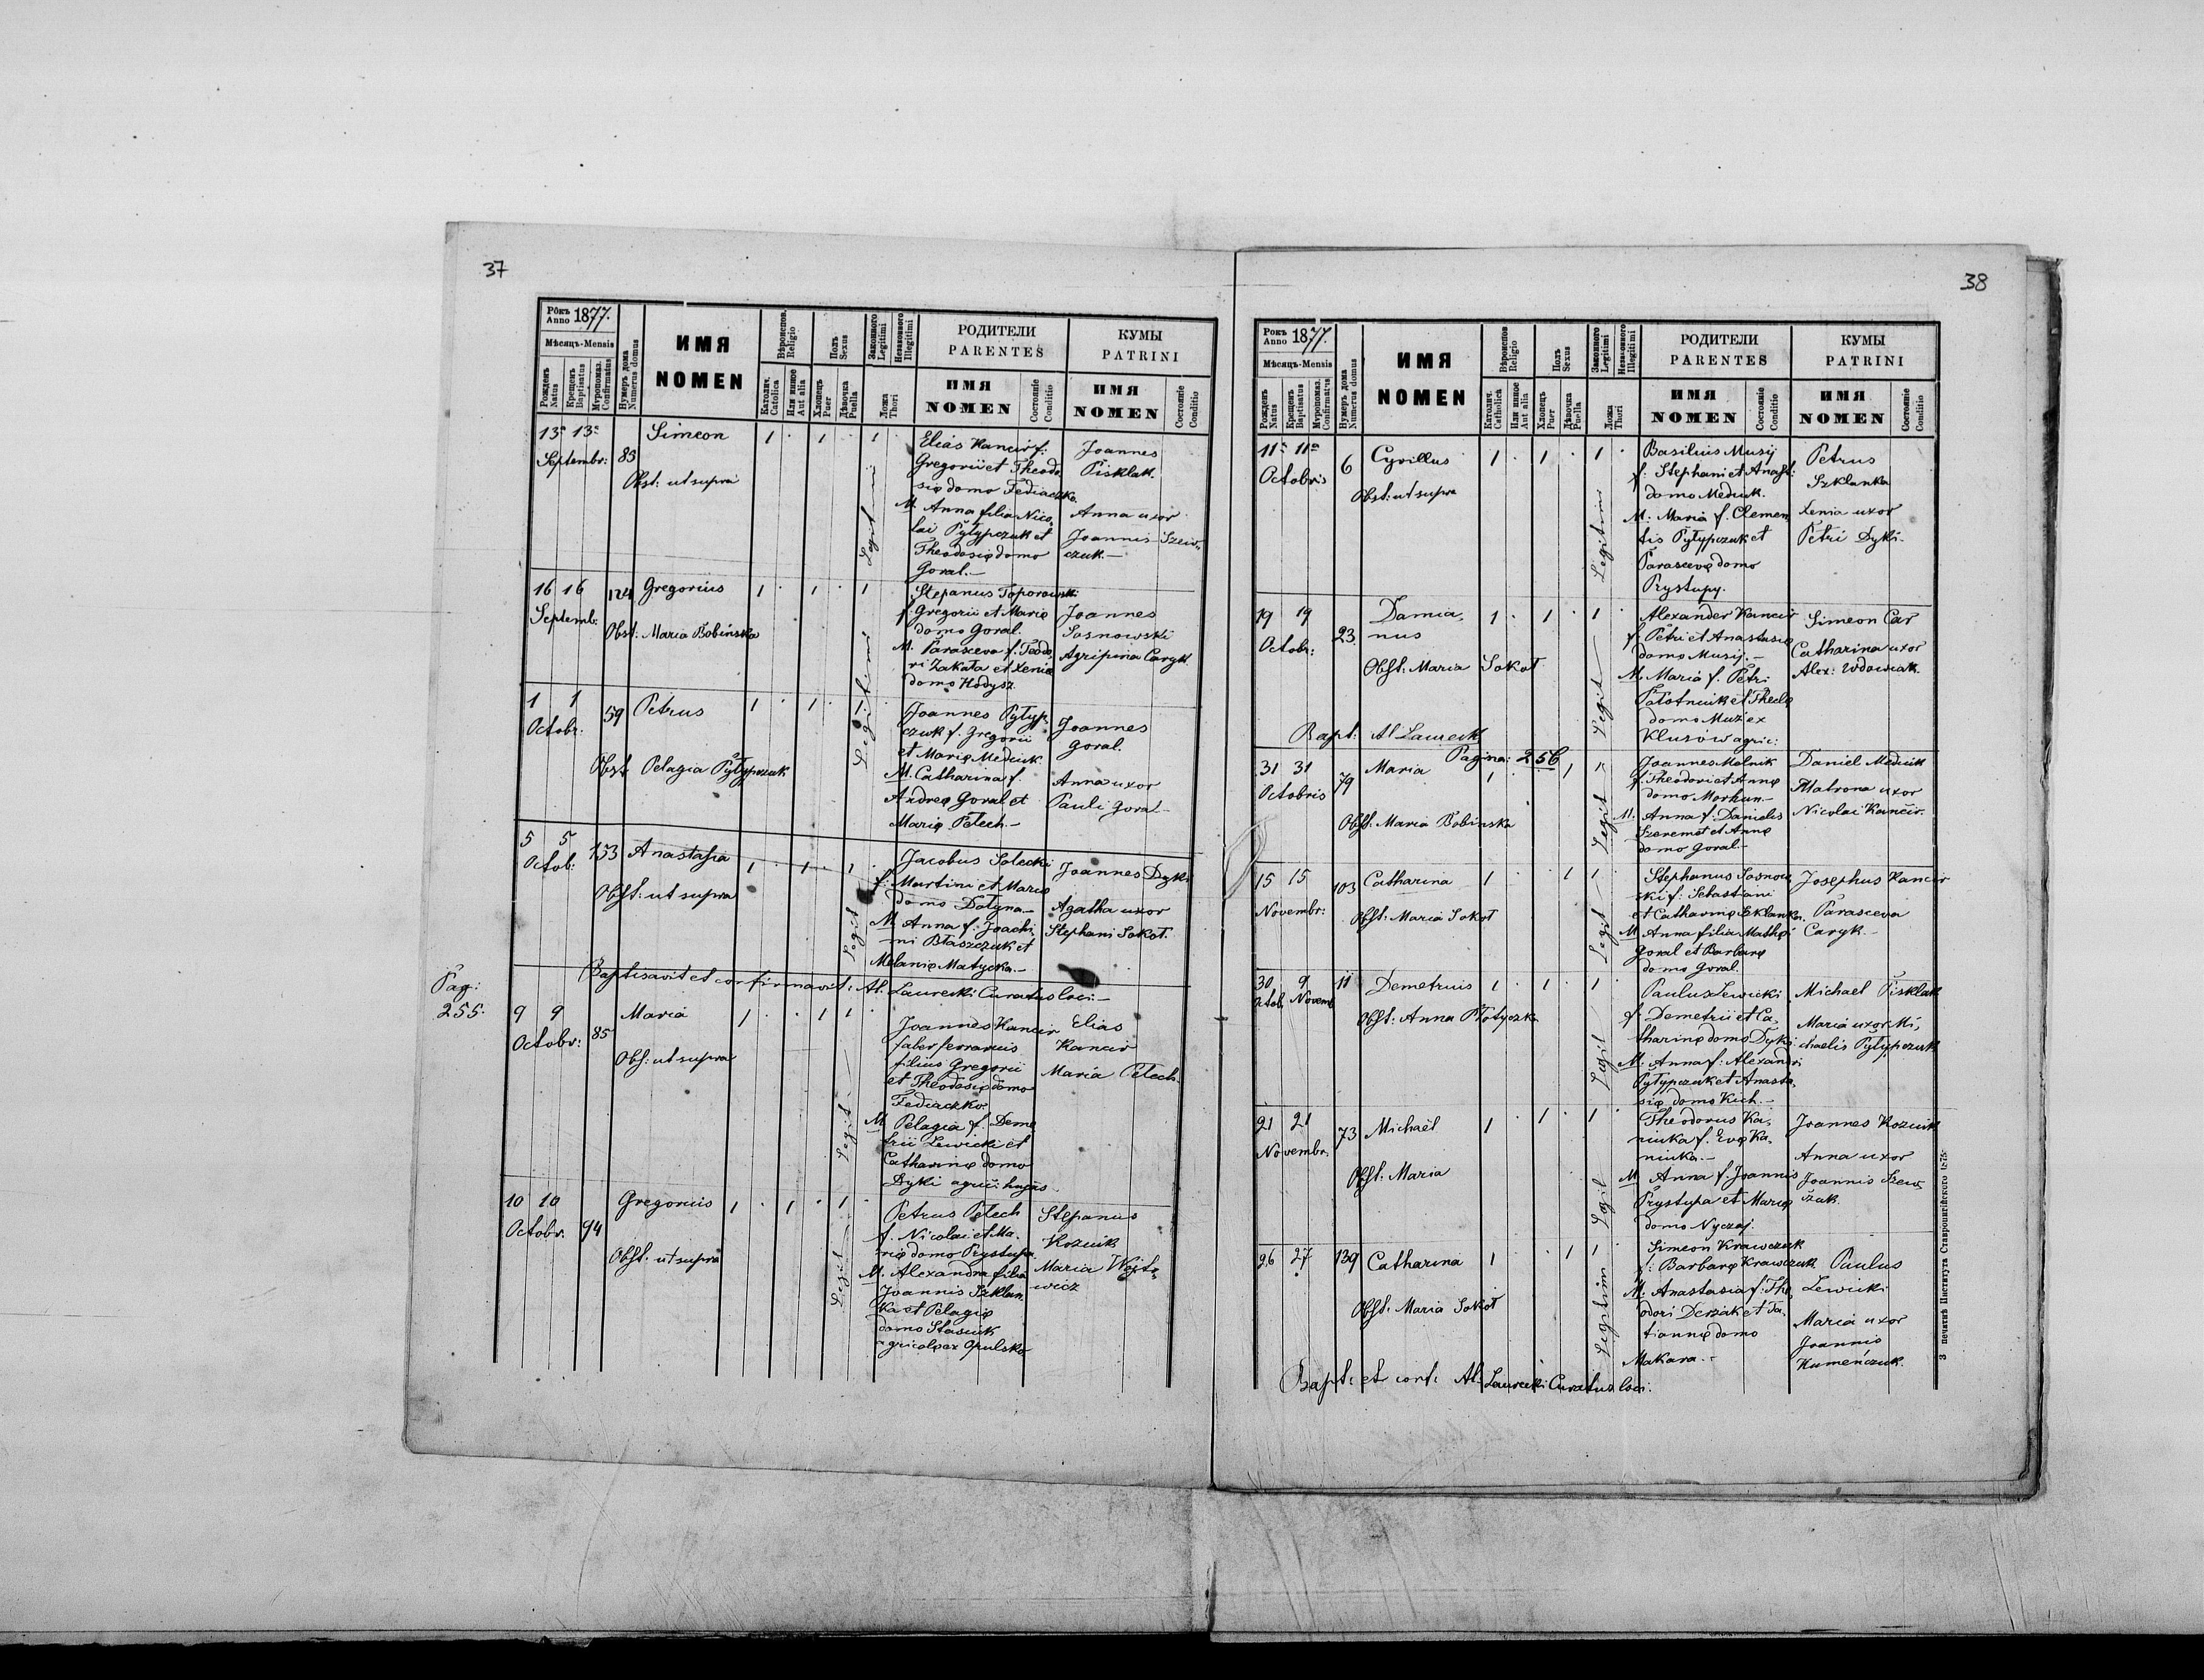 37
Рôкъ Anno 1877.
Мѣсяцъ-Mensis
Рожденъ Natus
Крещенъ Baptisatus
Муропомаз. Confirmatus
Нумеръ дома Numerus domus
ИМЯ
NOMEN
Вѣроиспов. Religio
Католич. Catolica
Или инное Aut alia
Полъ Sexus
Хлопець Puer
Дѣвочка Puella
Законного Legitimi
Незаконного Illegitimi
Ложа Thori
РОДИТЕЛИ
PARENTES
ИМЯ
NOMEN
Состояніе Conditio
КУМЫ
PATRINI
ИМЯ
NOMEN
Состояніе Conditio
13ª 13ª
Septembr: 83
Simeon
Obst: ut supra
1 . 1 . 1 .
Legitimi
Elias Kancir f:
Gregorii et Theodo
się domo Fediaczko.
M. Anna filia Nico,
lai Pyłypczuk et
Theodosię domo
Goral.-
Joannes
Pisklak.
Anna uxor
Joannis Szew,
czuk.-
16 16
Septemb:
124 Gregorius
Obst: Maria Bobinska
1 . 1 . 1
Legitimi
Stepanus Toporowski
f. Gregorii et Marię
domo Goral.
M. Parasceva f. Teodo,
ri Zakała et Xenię
domo Hodysz
Joannes
Sosnowski
Agripina Caryk
1 1
Octobr:
59 Petrus
Obst: Pelagia Pyłypczuk
1 . 1 . 1
Joannes Pyłyp,
czuk f. Gregorii
et Marię Medciuk
M. Catharina f.
Andreę Goral et
Marię Pelech.-
Joannes
Goral.
Anna uxor
Pauli Goral-
5 5
Octob:
153 Anastasia
Obst: ut supra
1 . 1 . 1 .
Legit
Jacobus Solecki
f: Martini et Marię
domo Dołyna.-
M. Anna f. Joachi,
mi Błaszczuk et
Melanię Matycka.-
Joannes Dyki
Agatha uxor
Stephani Sokoł.
Baptisavit et confirmavit: Al. Laurecki Curatus loci.-
Pag:
255.
9 9
Octobr: 85
Maria
Obs: ut supra
1 . . 1 1 .
Legit
Joannes Kancir
faber ferrarius
filius Gregorii
et Theodosię domo
Fediaczko.
M. Pelagia f. Deme
trii Lewicki et
Catharinę domo
Dyki agric: hujas.
Elias
Kancir
Maria Pelech.
10 10
Octobr. 94
Gregorius
Obst. ut supra
1 . 1 . 1 .
Legit
Petrus Pelech
f. Nicolai et Ma,
rię domo Prystupa.
M. Alexandra filia
Joannis Szklan,
ka et Pelagię
domo Stasiuk
agricolę ex Opulsko
Stepanus
Koziuik
Maria Wojto,
wicz
38
Рокъ Anno 1877.
Мѣсяцъ-Mensis
Рожденъ Natus
Крещенъ Baptisatus
Муропомаз. Confirmatus
Нумеръ дома Numerus domus
ИМЯ
NOMEN
Вѣроиспов Religio
Католич. Catholica
Или инное Aut alia
Полъ Sexus
Хлопець Puer
Дѣвочка Puella
Законного Legitimi
Незаконного Illegitimi
Ложа Thori
РОДИТЕЛИ
PARENTES
ИМЯ
NOMEN
Состояніе Conditio
КУМЫ
PATRINI
ИМЯ
NOMEN
Состояніе Conditio
11ª 11ª
Octobris 6
Cyrillus
Obst: ut supra
1 . 1 . 1 .
Legitimi
Basilius Musij
f. Stephani et Anast:
domo Medciuk.
M: Maria f. Clemen,
tis Pyłypczuk et
Parascevę domo
Prystupy.
Petrus
Szklanka
Xenia uxor
Petri Dyki-
19 19
Octobr: 23.
Damia,
nus
Obst: Maria Sokoł
1 . 1 . 1 .
Legit
Alexander Kancir
f. Petri et Anastasię
domo Musij.-
M. Maria f. Petri
Połotniuk et Theclę
domo Muz ex
Klusów agric:
Simeon Car
Catharina uxor
Alex: Wdowiak.
Bapt: Al Laurecki
Pagina: 256
31 31
Octobris 79
Maria
Obst: Maria Bobinska
1 . 1
Legit
Joannes Melnik
f Theodori et Annę
domo Morhun.-
M. Anna f. Danielis
Szeremet et Annę
domo Goral.-
Daniel Medciuk
Matrona uxor
Nicolai Kancir.
15 15
Novembr:
103 Catharina
Obst: Maria Sokoł
1 . 1 1
Legit
Stephanus Sosnow
ski f: Sebastiani
et Catharinę Szklanka.
M. Anna filia Mathęi
Goral et Barbarę
domo Goral.
Josephus Kancir
Parasceva
Caryk.-
30 9
Octob. Novemb.
11 Demetrius
Obst: Anna Płotyczka
1 . 1 . 1
Legit
Paulus Lewicki
f. Demetrii et Ca,
tharinę domo Dyki
M. Anna f: Alexandri
Pyłypczuk et Anasta,
się domo Kich.-
Michael Pisklak
Maria uxor Mi,
chaelis Pyłypczuk
21 21
Novembr. 73
Michaël
Obst: Maria
1 . 1 . 1
Legit
Theodorus Ka,
niuka f. Evę Ka,
niuka.-
M. Anna f. Joannis
Prystupa et Marię
domo Nyczaj.
Joannes Koziuik
Anna uxor
Joannis Szew,
czuk.
26 27 139
Catharina
Obst: Maria Sokoł
1 . . 1 1
Legitim
Simeon Krawczuk
f: Barbarę Krawczuk
M. Anastasia f: The,
odori Derżak et Ta,
tiannę domo
Makara.-
Paulus
Lewicki
Maria uxor
Joannis
Kumeńczuk.
Bapt: et conf: Al. Laurecki Curatus loci.
З печатнѣ Института Ставропигійского 1875